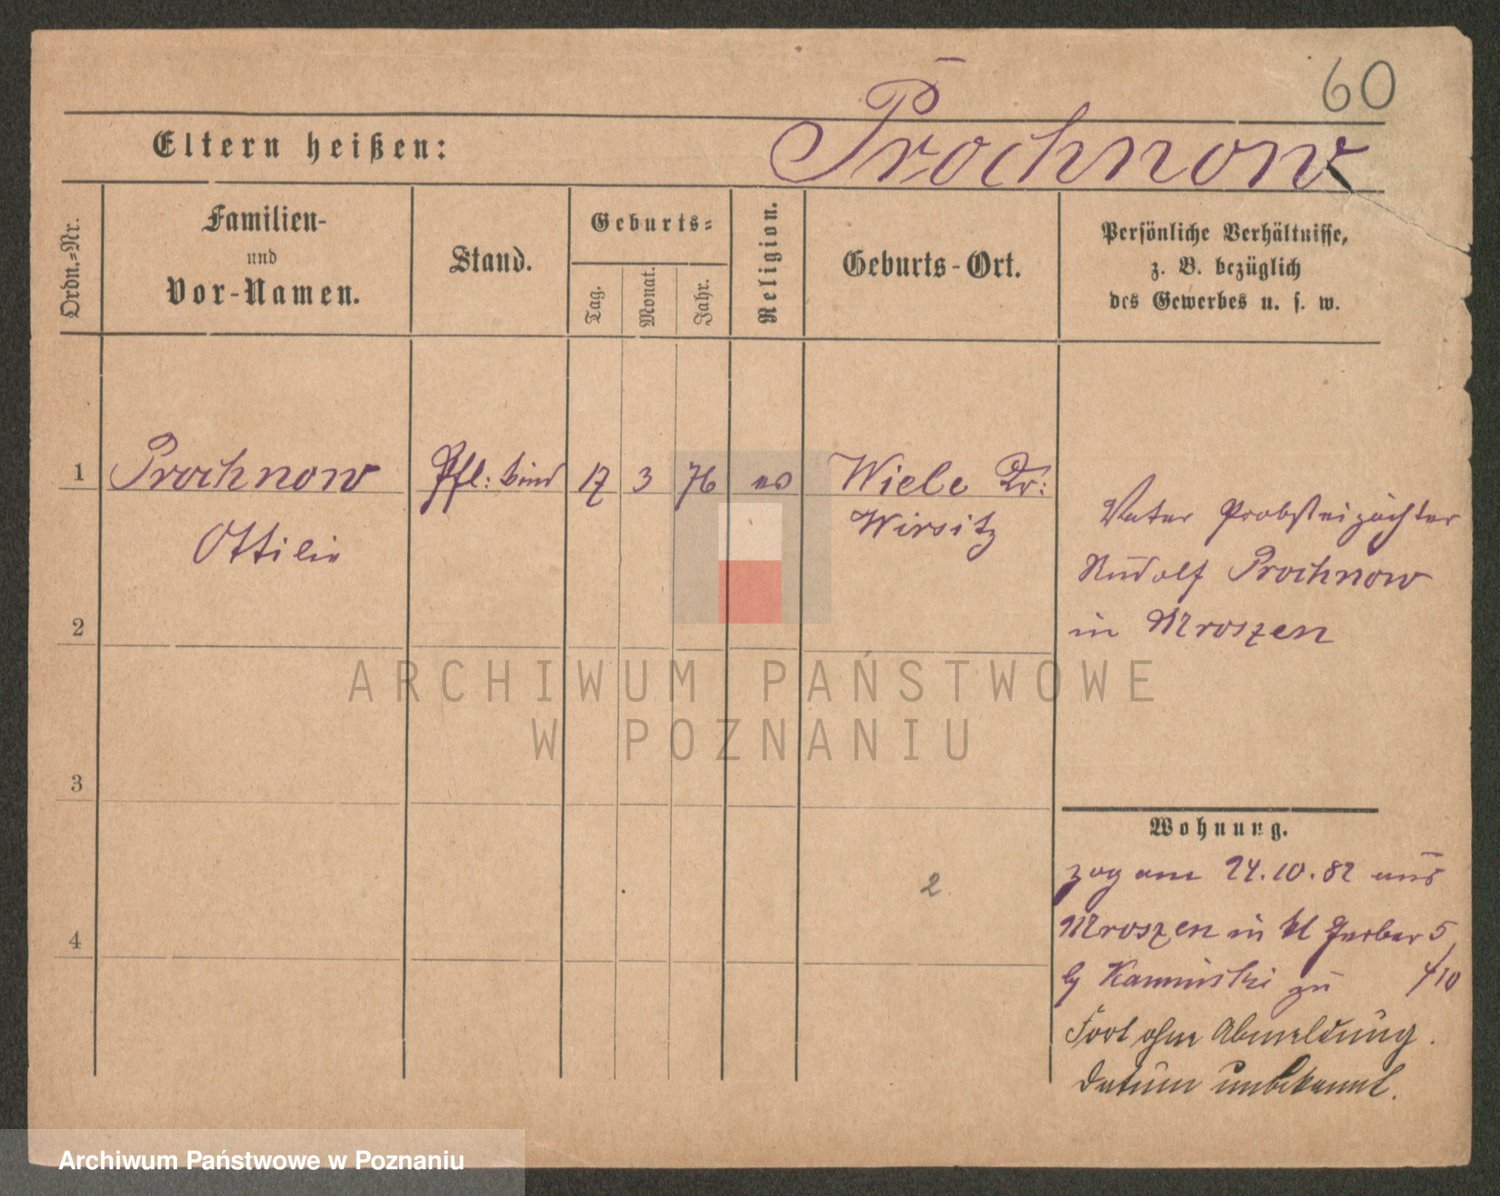 60
Eltern heißen:
Prochnow
Ordn.=Nr.
Familien-
und
Vor-Namen.
Stand.
Geburts=
Tag.
Monat.
Jahr.
Religion.
Geburts-Ort.
Persönliche Verhältnisse,
z. B. bezüglich
des Gewerbes u. s. w.
1
Prochnow
Pfl: kind
17
3
76
ev
Wiele Kr:
Wirsitz
Ottilie
Vater Probsteipächter
Rudolf Prochnow
in Mroszen
2
3
4
2
Wohnung.
zog am 24.10.82 aus
Mroszen in kl Gerber 5
by Kaminski zu
Fort ohne Abmeldung.
Datum unbekannt.
ARCHIWUM PAŃSTWOWE
W POZNANIU
Archiwum Państwowe w Poznaniu